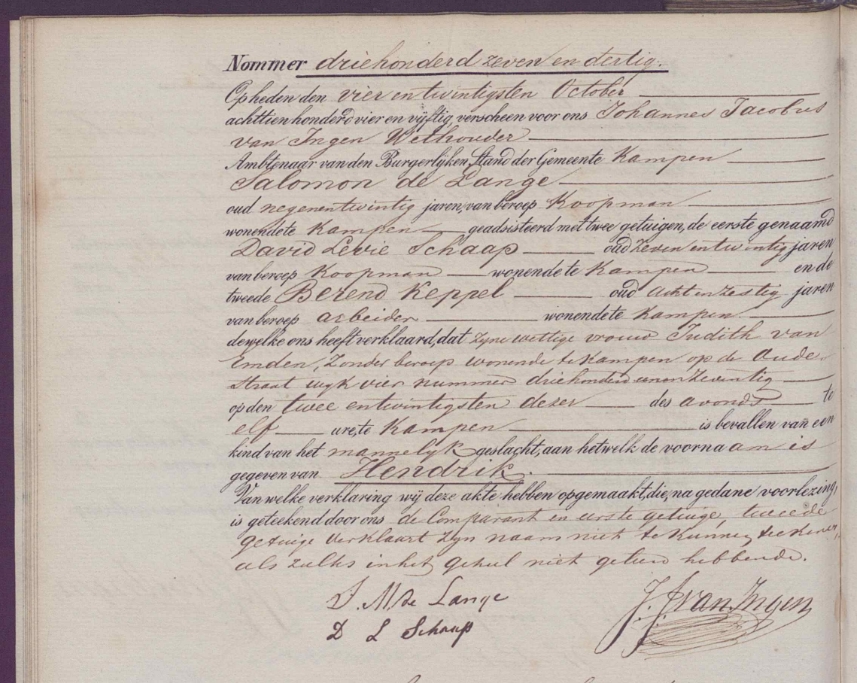 Nommer driehonderd zeven en dertig.
Op heden den vier en twintigsten October
achttienhonderd vier en vijftig, verscheen voor ons Johannes Jacobus
van Ingen Wethouder
Ambtenaar van den Burgerlyken Stand der Gemeente Kampen
Salomon de Lange
oud negenentwintig jaren, van beroep Koopman
wonende te Kampen geadsisteerd met twee getuigen, de eerste genaamd
David Levie Schaap oud zeven en twintig jaren
van beroep Koopman wonende te Kampen en de
tweede Berend Keppel oud acht en zestig jaren
van beroep arbeider wonende te Kampen
dewelke ons heeft verklaard, dat zyne wettige vrouw Judith van
Emden, zonder beroep wonende te Kampen op de Oude
Straat wyk vier nummer driehonderd zeventig
op den twee en twintigsten dezer des avonds te
elf ure, te Kampen is bevallen van een
kind van het mannelyk geslacht, aan hetwelk de voornaam is
gegeven van Hendrik.
Van welke verklaring wij deze akte hebben opgemaakt, die, na gedane voorlezing,
is geteekend door ons de Comparant en eerste getuige, tweede
getuige verklaart zyn naam niet te kunnen teekenen,
als zulks in het geheel niet geleerd hebbende.
S. M. de Lange
D L Schaap
J. J. van Ingen